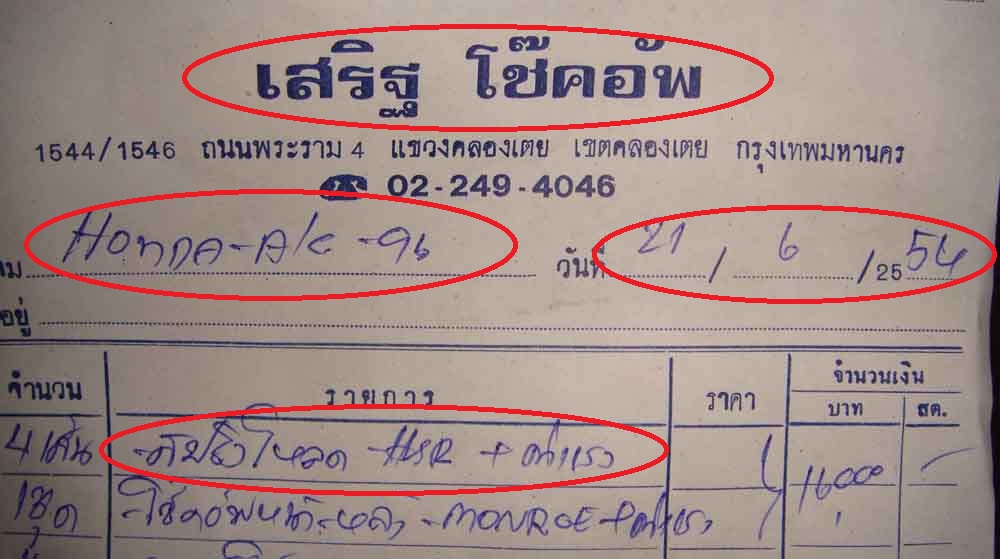 เสริฐ โช๊คอัพ
1544/1546 ถนนพระราม 4 แขวงคลองเตย เขตคลองเตย กรุงเทพมหานคร
☎ 02-249-4046
HONDA-A/C-96 วันที่ 21 / 6 / 25 54
อยู่
จำนวน รายการ ราคา จำนวนเงิน
บาท สต.
4 เส้น โหลด - HSR + ค่าแรง
1 ชุด - โช๊คอัพหน้า-หลัง - MONROE + ค่าแรง 16000